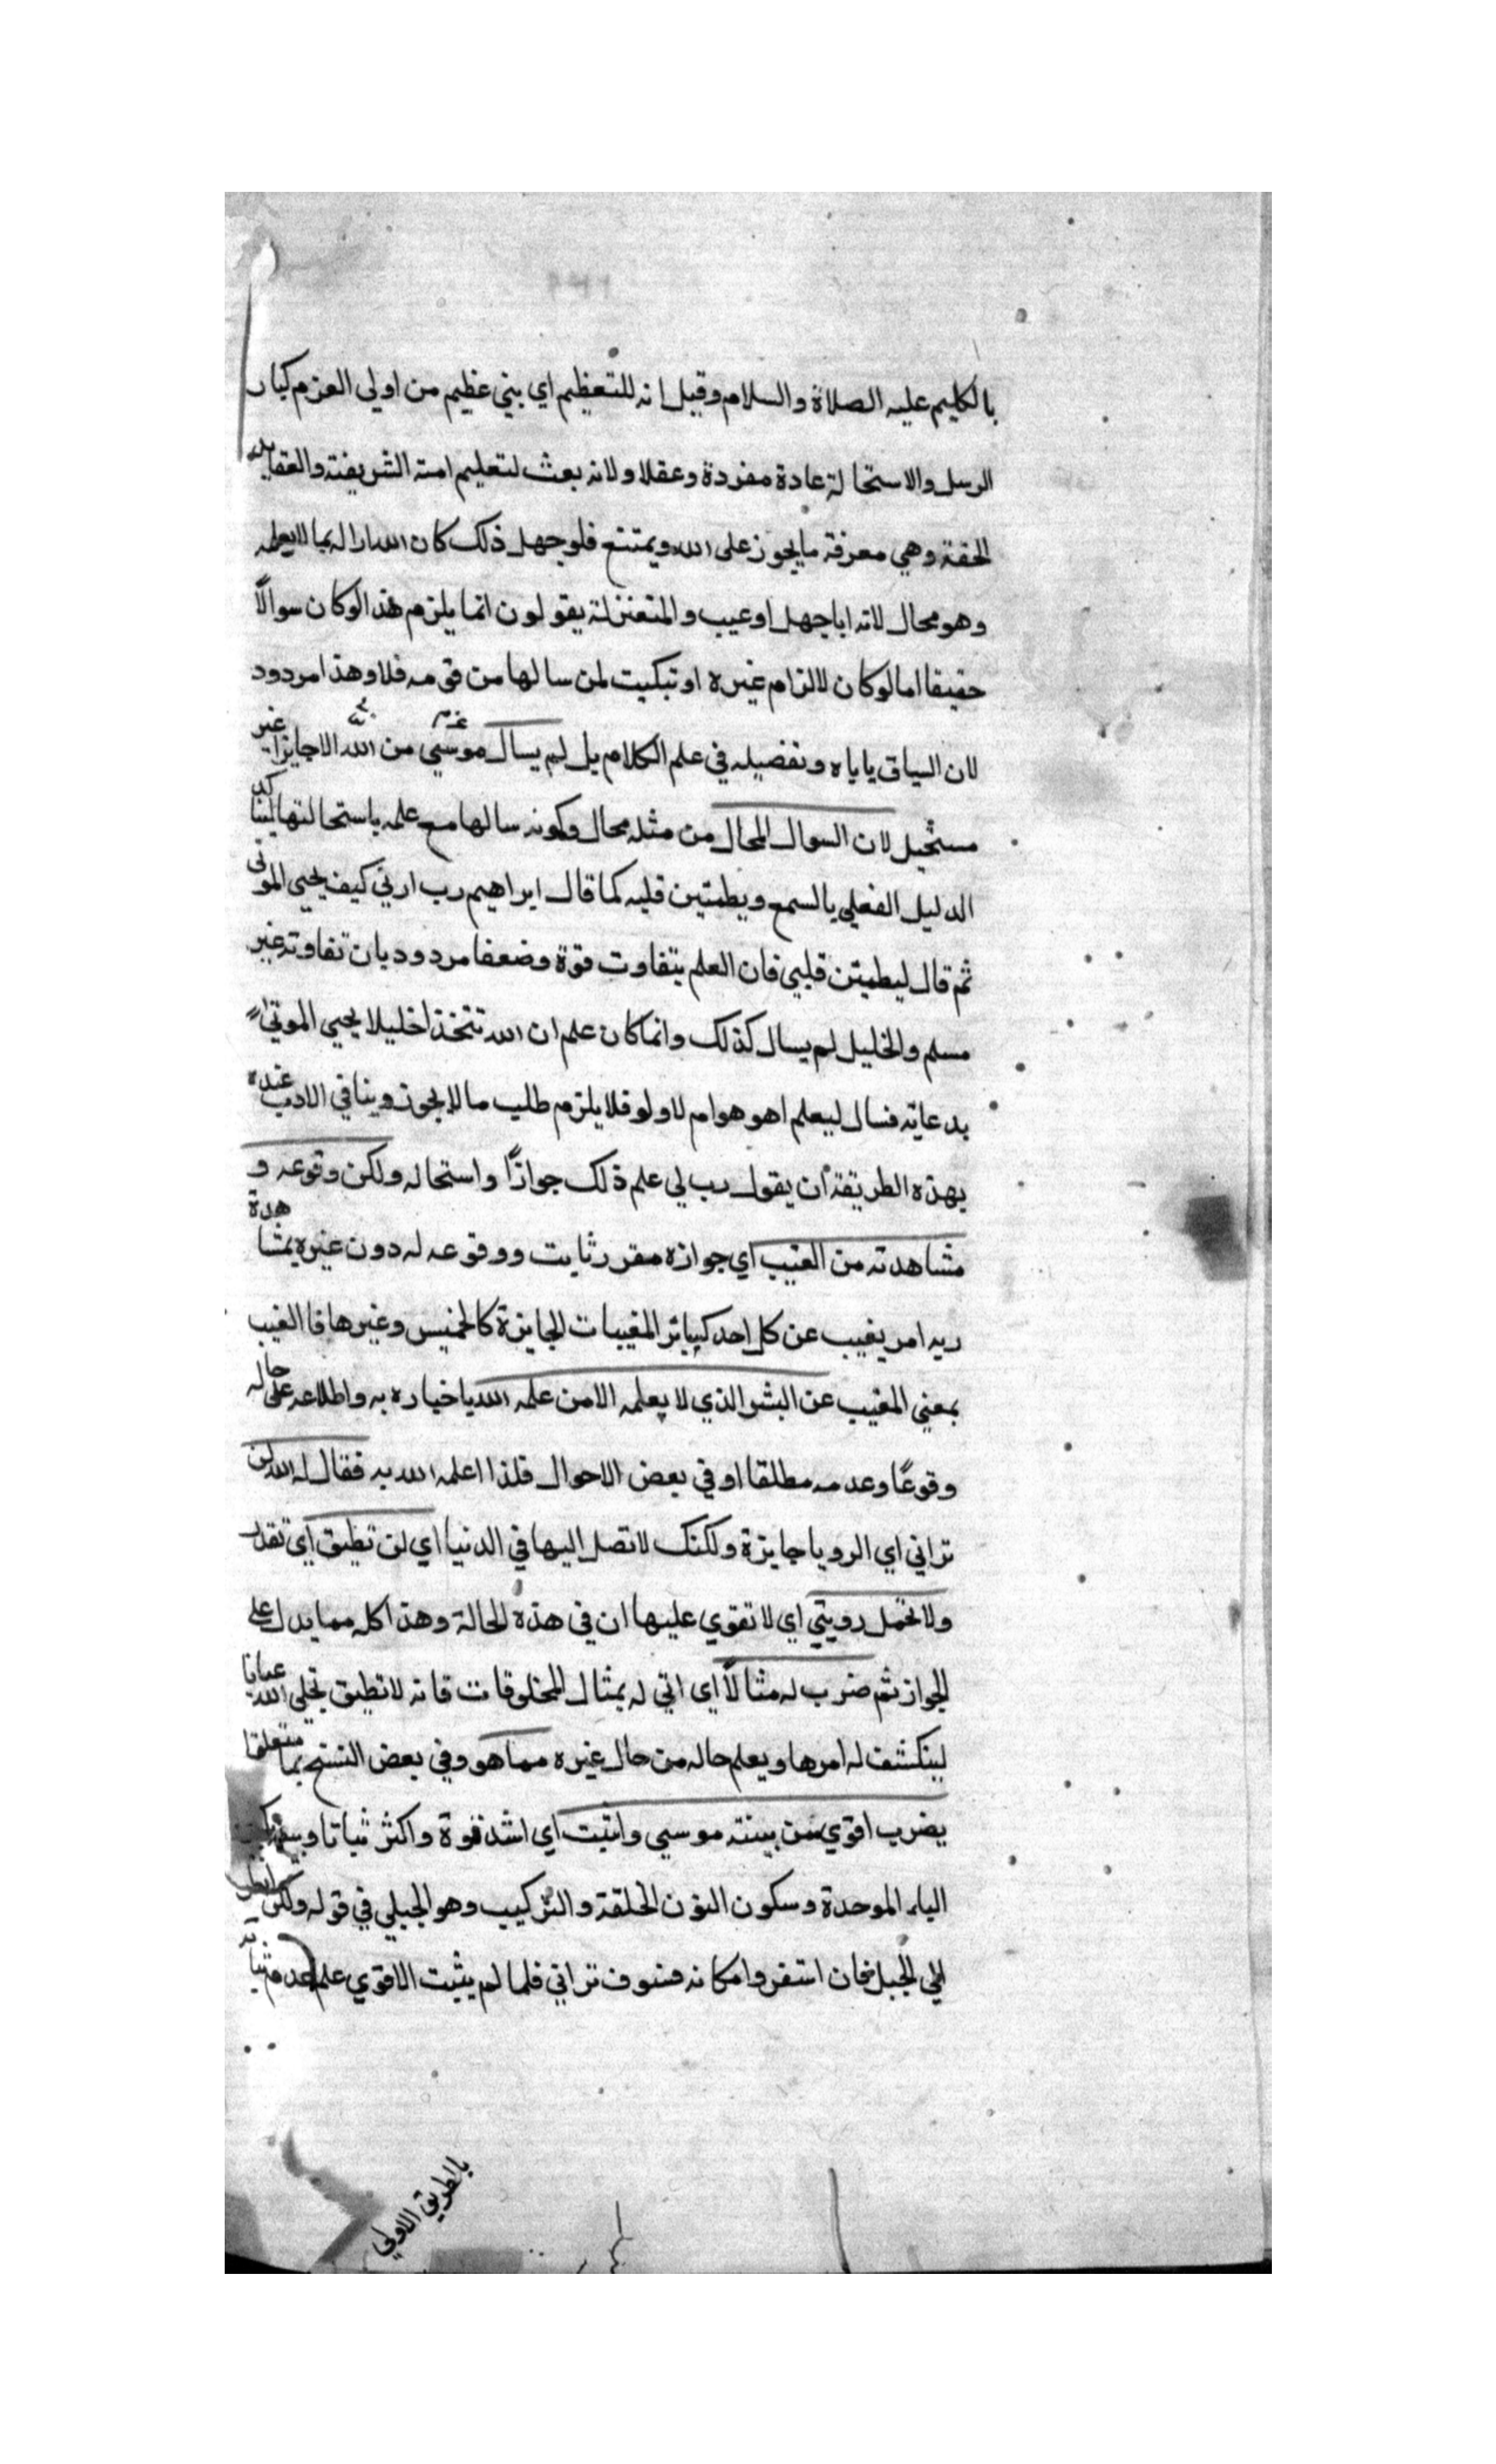 بالكليم عليه الصلاة والسلام وقيل انه للتعظيم اي بني عظيم من اولي العزم كبار
الرسل والاستحالة عادة مفردة وعقلا ولانه بعث لتعليم امته الشريفة والعقايد
الحقة وهي معرفة ما يجوز على الله ويمتنع فلو جهل ذلك كان الله ارساله بما لا يعلمه
وهو محال لانه اباجهل او عيب والمتعنزلة يقولون انما يلزم هذا لو كان سوالًا
حقيقا اما لو كان لالزام غيره او تبكيت لمن سالها من قومه فلا وهذا مردود
لان السياق ياباه وتفضيله في علم الكلام بل لم يسال موسي من الله الا جايزا غير
مستحيل لان السوال المحال من مثله محال وكونه سالها مع علمه باستحالتها ليتاكد
الدليل الفعلي بالسمع ويطمئين قلبه كما قال ابراهيم رب ارني كيف يحيي الموتى
ثم قال ليطمئن قلبي فان العلم يتفاوت قوة وضعفا مردود بان تفاوته غير
مسلم والخليل لم يسال كذلك وانما كان علم ان الله تتخذ اخليلا يحيي الموتي
بدعايه فسال ليعلم اهو هو ام لا ولو فلا يلزم طلب ما لا يجوز وينافي الادب عنده
بهذه الطريقة أن يقول رب لي علم ذلك جوازًا واستحاله ولكن وقوعه و
مشاهدته من الغيب اي جوازه مقرر ثابت ووقوعه له دون غيره بمشاهدة
ربه امر يغيب عن كل احد كباير المغيبات الجايزة كالخميس وغيرها فا الغيب
بمعني المغيب عن البشر الذي لا يعلمه الا من علمه الله باخباره به واطلاعه على حاله
وقوعًا وعدمه مطلقا او في بعض الاحوال فلذا اعلمه الله به فقال له الله لن
تراني اي الرويا جايزة ولكنك لا تصل اليها في الدنيا اي لن تطيق اي تقدر
ولا تحتمل رويتي اي لا تقوي عليها ان في هذه الحالة وهذا كله مما يدل على
الجواز ثم ضرب له مثالًا اي اتي له بمثال المخلوقات فانه لا تطيق تجلي الله عيانا
لينكشف له امرها ويعلم حاله من حال غيره مما هو وفي بعض النسخ بما متعلقا
يضرب اقوي من بينته موسي واثبت اي اشد قوة واكثر ثباتا وبينه
الباء الموحدة وسكون النون الخلقة والتركيب وهو الجبلي في قوله ولكن انظر
الي الجبل فان استقر وامكانه فسوف تراني فلما لم يثبت الاقوي علم عدم ثباته
بالطريق الاولي